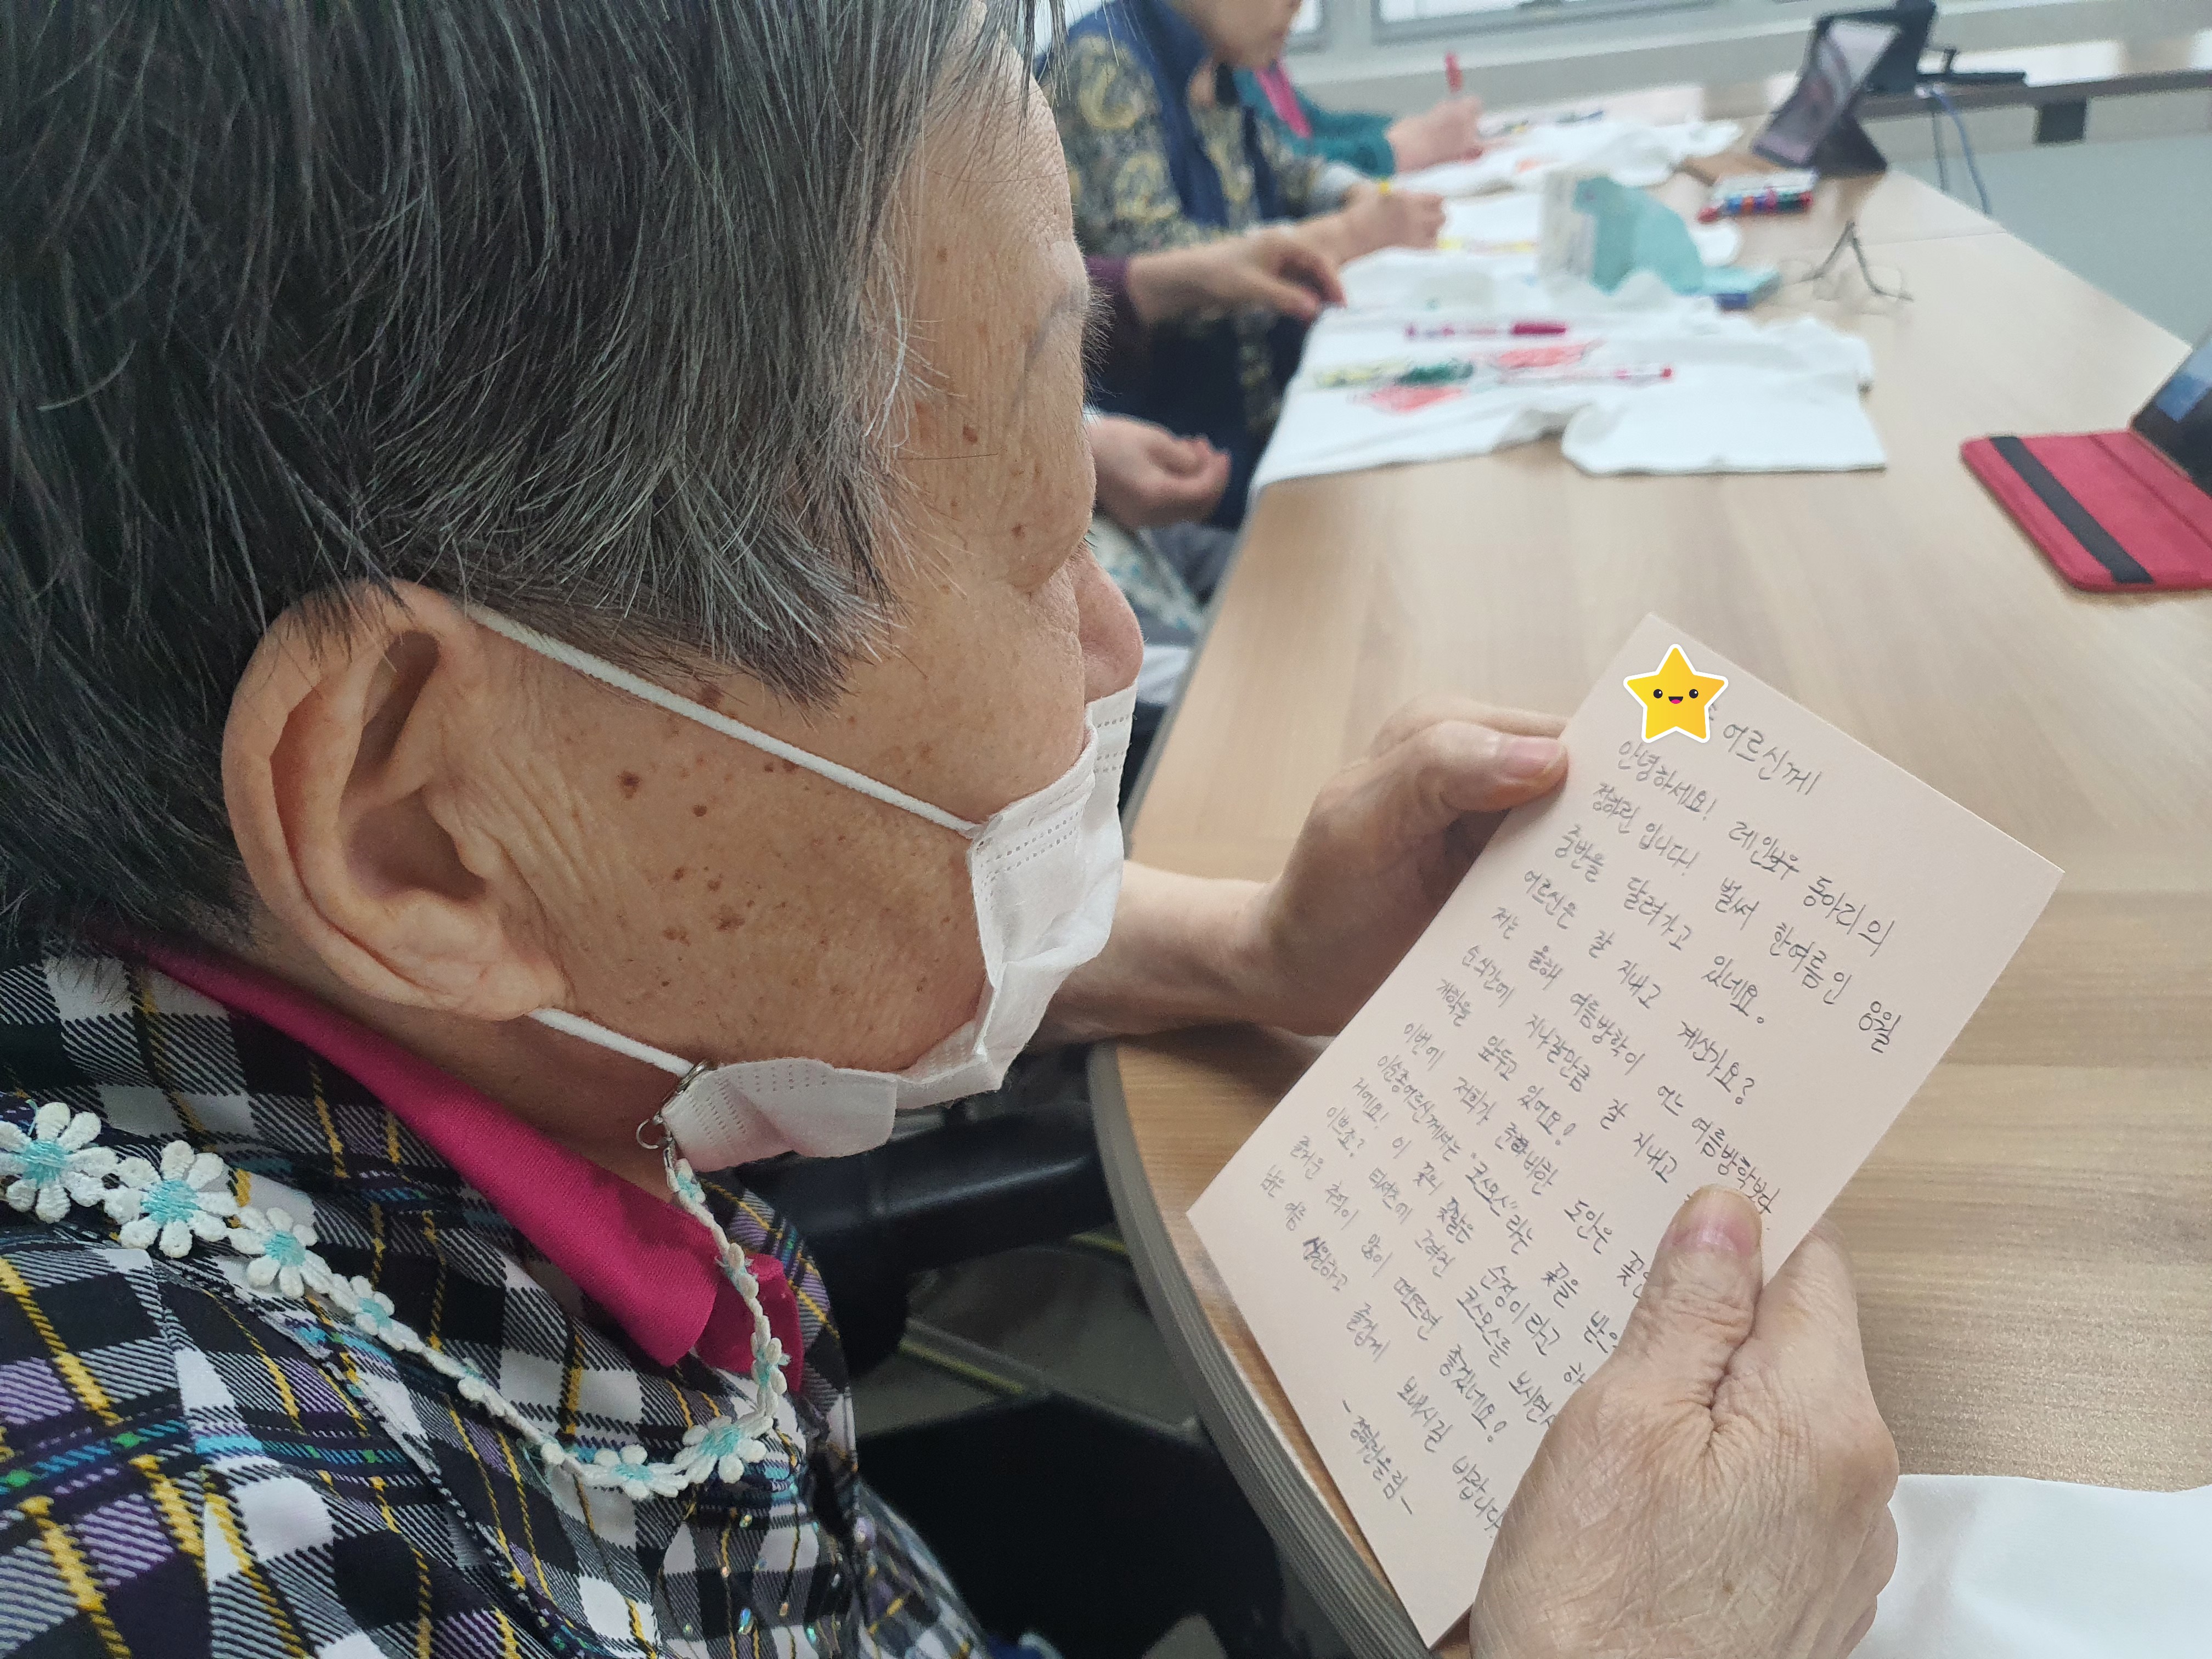 어르신께
안녕하세요! 레인보우 동아리의
정하린 입니다! 벌써 한여름인
중반을 달려가고 있네요.
어르신은 잘 지내고 계신가요?
저는 올해 여름방학이 어느 여름방학보다
순식간에 지나갈만큼 잘 지내고
개학을 앞두고 있어요!
이번에 저희가 준비한 도안은
어르신께서는 "코스모스"라는 꽃을
거예요! 이 꽃의 꽃말은 순정이라고
이쁘죠? 티셔츠에 그려진 코스모스를 보시면서
즐거운 추억이 많이 떠오르면 좋겠네요!
남은 여름 시원하고 즐겁게 보내시길 바랍니다.
-정하린 올림-